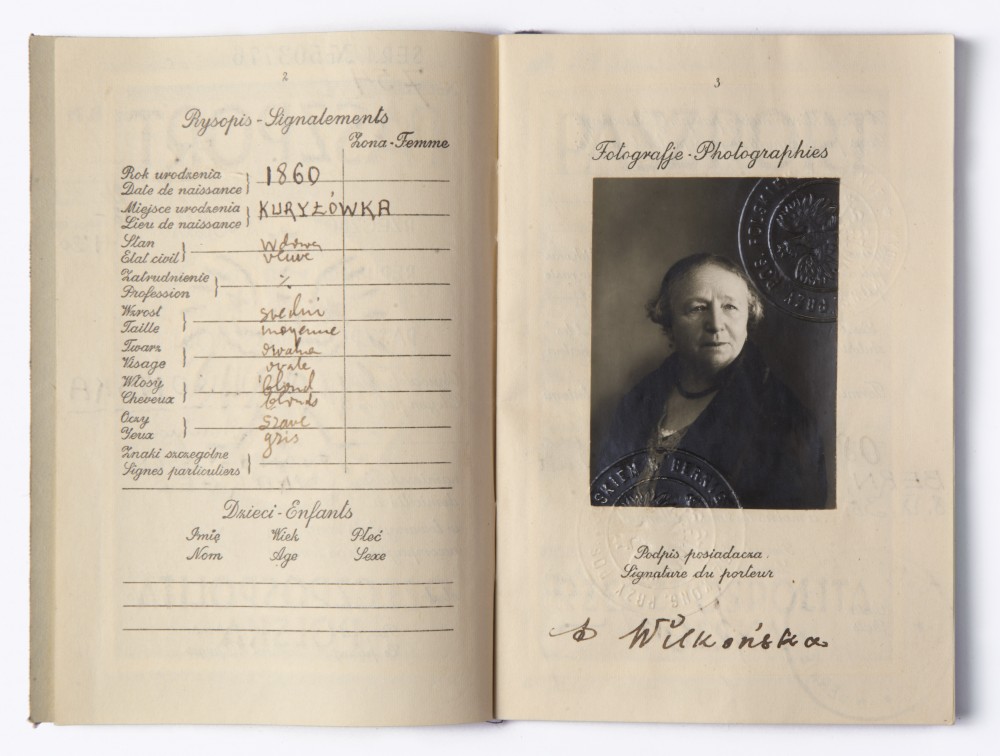 2
Rysopis - Signalements
Żona - Femme
Rok urodzenia
Date de naissance
1860
Miejsce urodzenia
Lieu de naissance
KURYŁÓWKA
Stan
Etat civil
wdowa
veuve
Zatrudnienie
Profession
·/·
Wzrost
Taille
średni
moyenne
Twarz
Visage
owalna
ovale
Włosy
Cheveux
blond
blonds
Oczy
Yeux
szare
gris
Znaki szczególne
Signes particuliers
Dzieci - Enfants
Imię Wiek Płeć
Nom Age Sexe
3
Fotografje - Photographies
Podpis posiadacza
Signature du porteur
Wilkońska